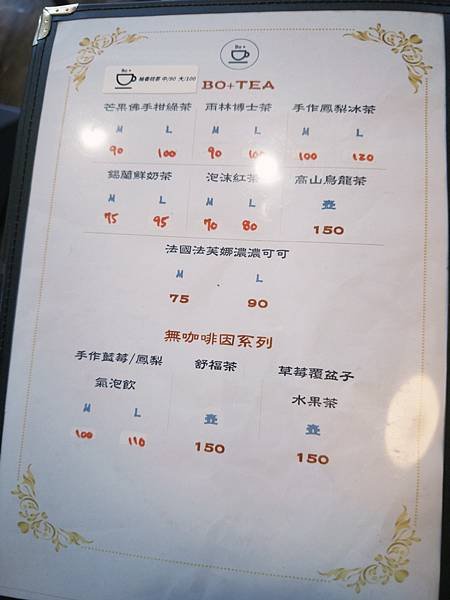 Bo +
Bo +
柚香奶茶 中/90 大/100
BO+TEA
芒果佛手柑綠茶 雨林博士茶 手作鳳梨冰茶
M L M L M L
90 100 90 100 100 120
錫蘭鮮奶茶 泡沫紅茶 高山烏龍茶
M L M L 壺
75 95 70 80 150
法國法芙娜濃濃可可
M L
75 90
無咖啡因系列
手作藍莓/鳳梨 舒福茶 草莓覆盆子
氣泡飲 水果茶
M L 壺 壺
100 110 150 150